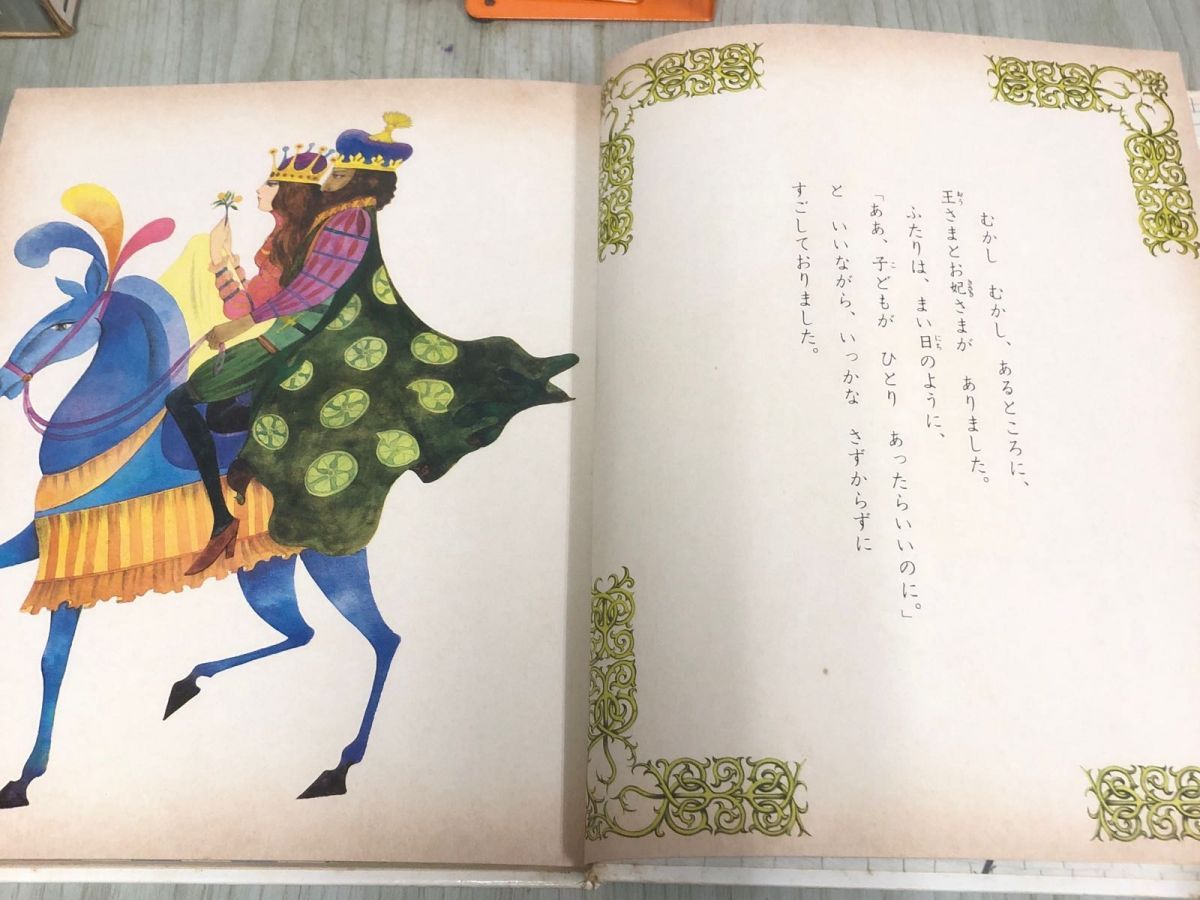 むかし むかし、あるところに、
王さまとお妃さまが ありました。
ふたりは、まい日のように、
「ああ、子どもが ひとり あったらいいのに。」
と いいながら、いっかな さずからずに
すごしておりました。